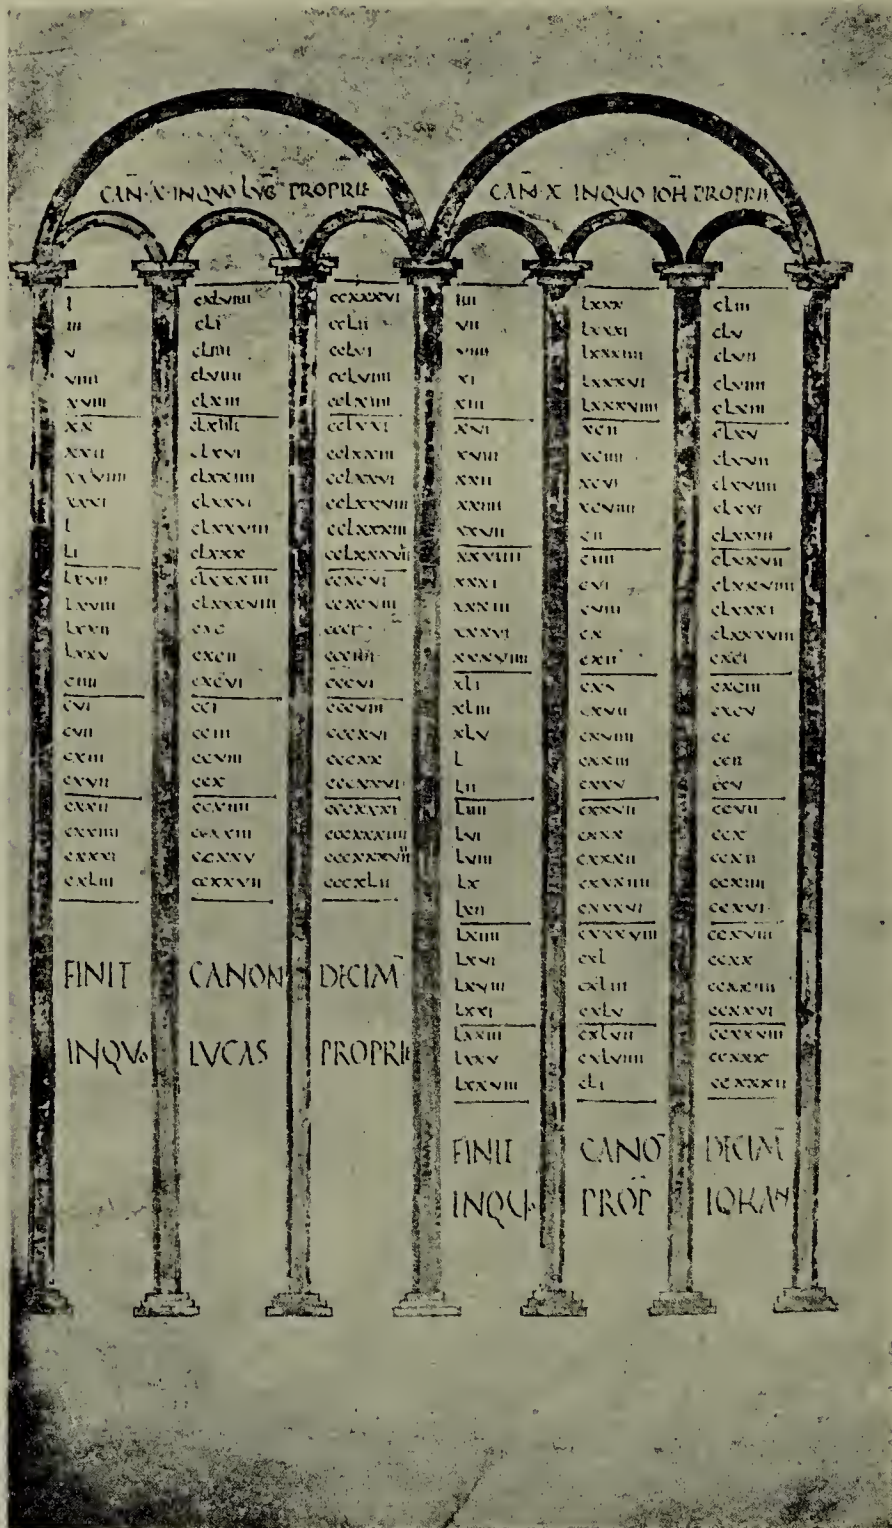 CAN̄·X·INQVO LVC̄ PROPRIE
I
III
V
VIIII
XVIII
XX
XXII
XXVIIII
XXXI
L
LI
LXVII
LXVIII
LXXII
LXXV
CIIII
CVI
CVII
CXIII
CXVII
CXXII
CXXVIIII
CXXXI
CXLIII
CXLVIIII
CLI
CLIIII
CLVIIII
CLXIII
CLXIIII
CLXVI
CLXXIIII
CLXXVI
CLXXVIII
CLXXX
CLXXXIII
CLXXXVIII
CXC
CXCII
CXCVI
CCI
CCIII
CCVIII
CCX
CCXIIII
CCXXIII
CCXXV
CCXXVII
CCXXXVI
CCLII
CCLVI
CCLVIIII
CCLXIIII
CCLXXI
CCLXXIII
CCLXXVI
CCLXXVIII
CCLXXXIII
CCLXXXVII
CCXCVI
CCXCVIII
CCCI
CCCIIII
CCCVI
CCCVIII
CCCXVI
CCCXX
CCCXXVI
CCCXXXI
CCCXXXIIII
CCCXXXVII
CCCXLII
FINIT CANON DECIM̄
INQVO LVCAS PROPRIE
CAN̄·X INQVO IOH̄ PROPRIE
IIII
VII
VIIII
XI
XIII
XVI
XVIII
XXII
XXIIII
XXVII
XXVIIII
XXXI
XXXIII
XXXVI
XXXVIIII
XLI
XLIII
XLV
L
LII
LIIII
LVI
LVIII
LX
LXII
LXIIII
LXVI
LXVIII
LXXI
LXXIII
LXXV
LXXVIII
LXXX
LXXXI
LXXXIIII
LXXXVI
LXXXVIIII
XCII
XCIIII
XCVI
XCVIIII
CII
CIIII
CVI
CVIII
CX
CXII
CXV
CXVII
CXVIIII
CXXIII
CXXV
CXXVII
CXXX
CXXXII
CXXXIIII
CXXXVI
CXXXVIII
CXL
CXLIII
CXLV
CXLVII
CXLVIIII
CLI
CLIII
CLV
CLVII
CLVIIII
CLXIII
CLXV
CLXVII
CLXVIIII
CLXXI
CLXXIII
CLXXVII
CLXXVIIII
CLXXXI
CLXXXVIII
CXCI
CXCIII
CXCV
CC
CCII
CCV
CCVII
CCX
CCXII
CCXIIII
CCXVI
CCXVIII
CCXX
CCXXIIII
CCXXVI
CCXXVIII
CCXXX
CCXXXII
FINIT CANO̅ DECIM̄
INQVO PROP̄ IOHAN